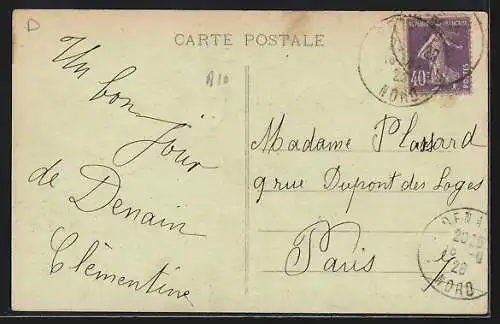 D
CARTE POSTALE
A10
REPUBLIQUE FRANÇAISE
40c
POSTES
NORD
Un bon
jour
de Denain
Clémentine
Madame
9 rue Dupont des Loges
Paris
DENAIN
28
NORD